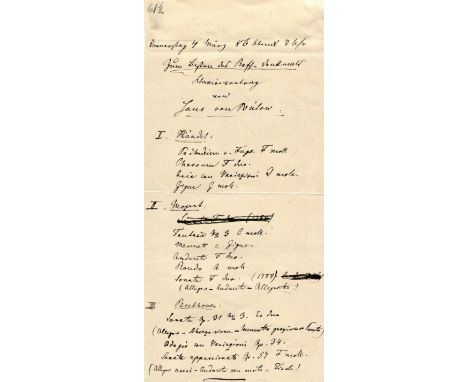 Donnerstag 4 März 86 Abend 7 Uhr
Zum Besten des Raff-Denkmals
Klaviervortrag
von
Hans von Bülow.
I. Händel:
Präludium u. Fuge F moll
Chaconne F dur.
Aria con Variazioni D moll.
Gigue G moll.
II. Mozart:
Fantasie No 3 C moll.
Menuett e Gigue.
Andante F dur.
Rondo A moll.
Sonate F dur. (1788)
(Allegro - Andante - Allegretto)
III Beethoven
Sonate Op. 31 No 3. Es dur
(Allegro - Scherzo vivace - Menuetto grazioso - Presto)
Adagio con Variazioni Op. 34.
Sonate appassionata Op. 57 F moll.
(Allegro assai - Andante con moto - Finale)